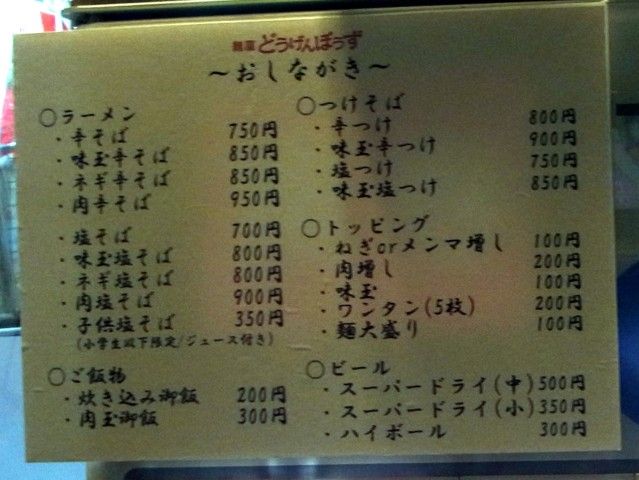 麺屋 どうげんぼうず
～おしながき～
〇ラーメン
・辛そば 750円
・味玉辛そば 850円
・ネギ辛そば 850円
・肉辛そば 950円
・塩そば 700円
・味玉塩そば 800円
・ネギ塩そば 800円
・肉塩そば 900円
・子供塩そば 350円
(小学生以下限定/ジュース付き)
〇ご飯物
・炊き込み御飯 200円
・肉玉御飯 300円
〇つけそば
・辛つけ 800円
・味玉辛つけ 900円
・塩つけ 750円
・味玉塩つけ 850円
〇トッピング
・ねぎorメンマ増し 100円
・肉増し 200円
・味玉 100円
・ワンタン(5枚) 200円
・麺大盛り 100円
〇ビール
・スーパードライ(中) 500円
・スーパードライ(小) 350円
・ハイボール 300円